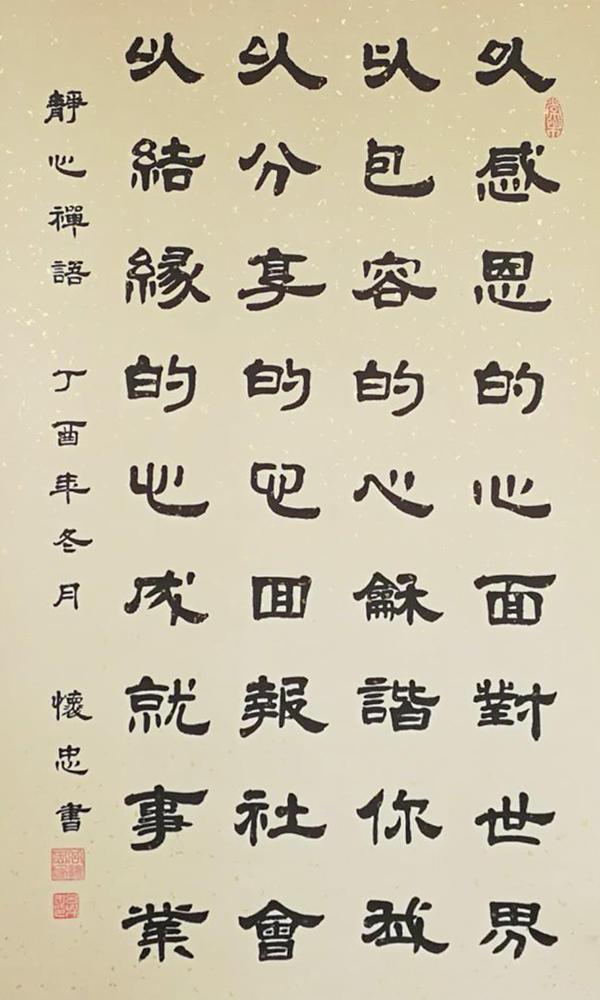 以感恩的心面對世界
以包容的心龢諧你我
以分享的心回報社會
以結緣的心成就事業
靜心禪語 丁酉年冬月 懷忠書